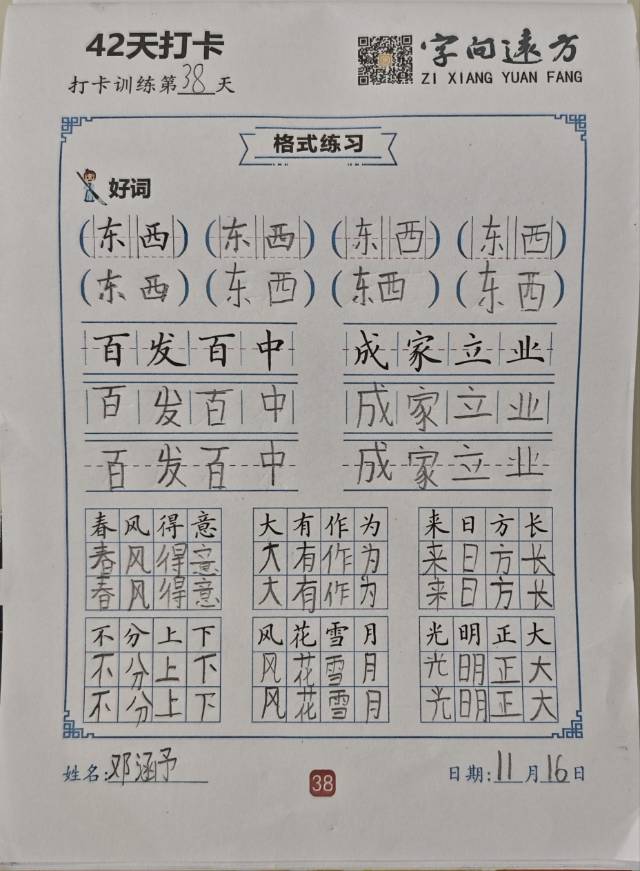 42天打卡
字向远方
打卡训练第38天
ZI XIANG YUAN FANG
格式练习
好词
(东西) (东西) (东西) (东西)
(东西) (东西) (东西) (东西)
百发百中 成家立业
百发百中 成家立业
百发百中 成家立业
春风得意 大有作为 来日方长
春风得意 大有作为 来日方长
春风得意 大有作为 来日方长
不分上下 风花雪月 光明正大
不分上下 风花雪月 光明正大
不分上下 风花雪月 光明正大
姓名:邓涵予 38 日期:11月16日